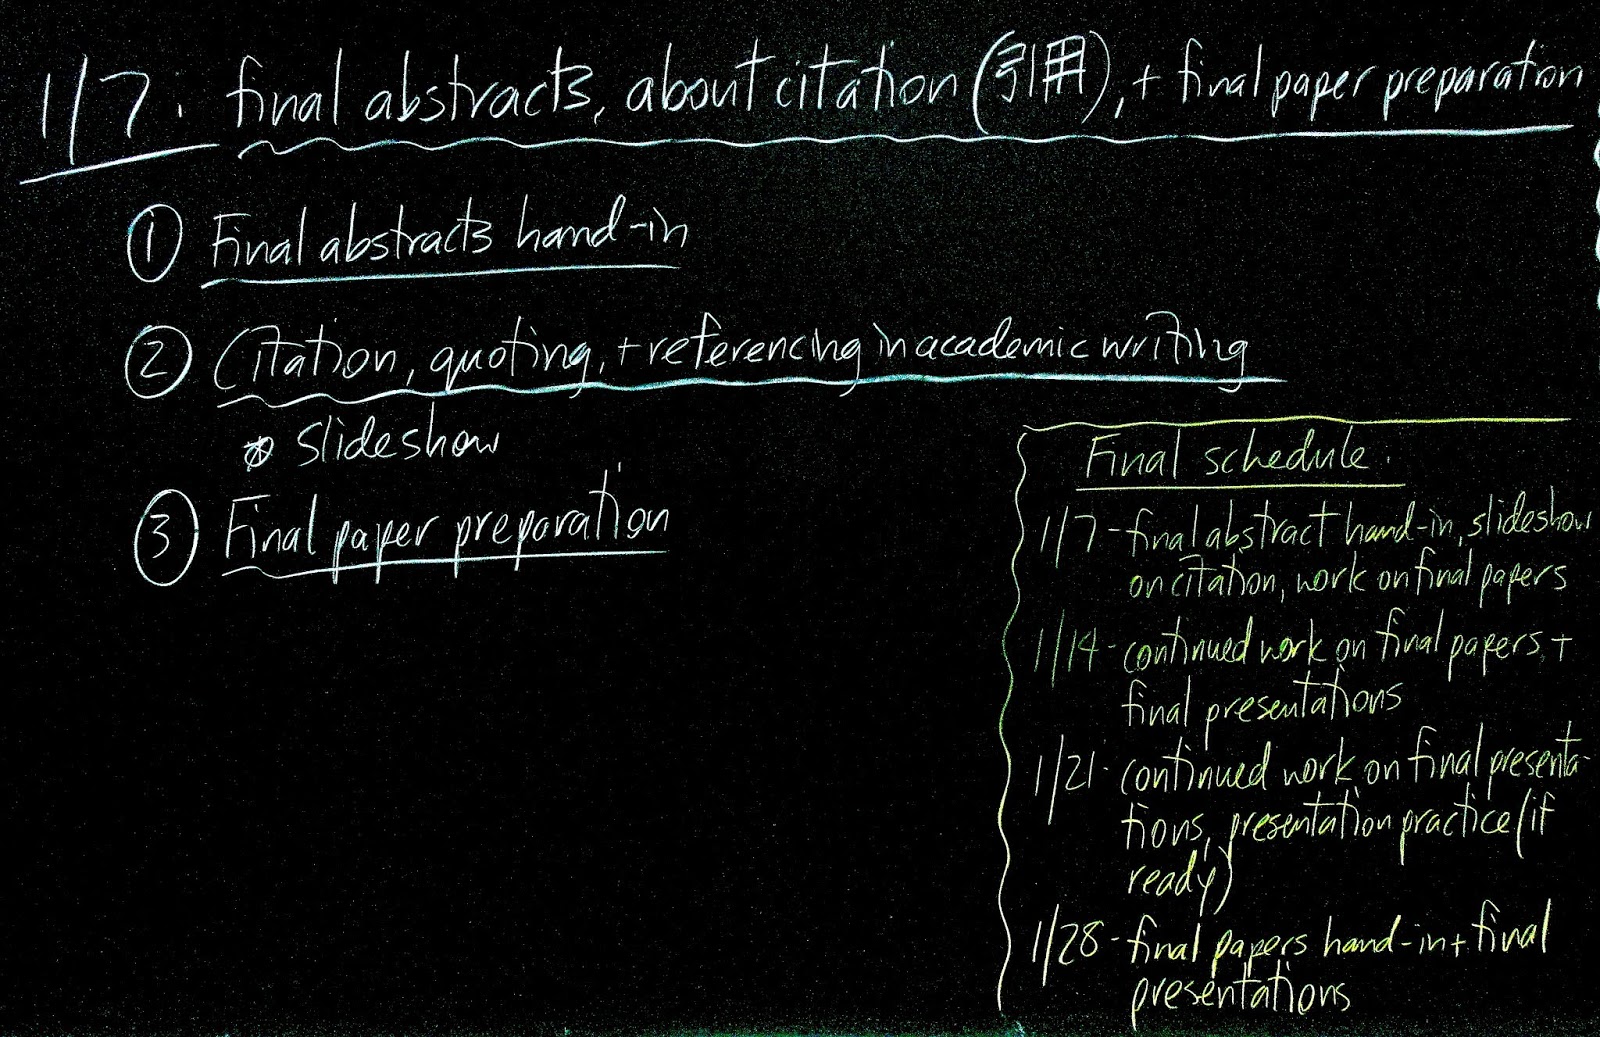 1/7. final abstracts, about citation (引用), + final paper preparation
① Final abstracts hand-in
② Citation, quoting, + referencing in academic writing
☆ slideshow
③ Final paper preparation
Final schedule.
1/7 - final abstract hand-in, slideshow
on citation, work on final papers
1/14 - continued work on final papers, +
final presentations
1/21 - continued work on final presenta-
tions, presentation practice (if
ready)
1/28 - final papers hand-in + final
presentations